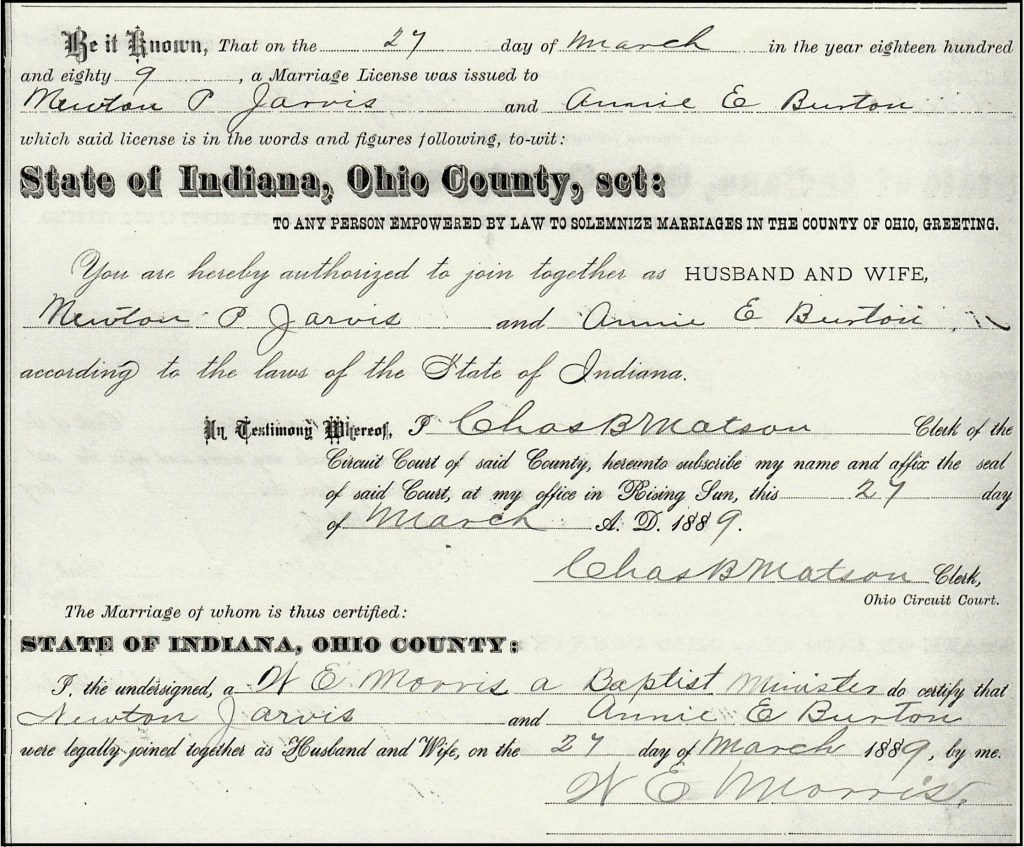 Be it Known, That on the 27 day of March in the year eighteen hundred
and eighty 9, a Marriage License was issued to
Newton P Jarvis and Annie E Burton
which said license is in the words and figures following, to-wit:
State of Indiana, Ohio County, sct:
TO ANY PERSON EMPOWERED BY LAW TO SOLEMNIZE MARRIAGES IN THE COUNTY OF OHIO, GREETING.
You are hereby authorized to join together as HUSBAND AND WIFE,
Newton P Jarvis and Annie E Burton
according to the laws of the State of Indiana.
In Testimony Whereof, I Chas B Matson Clerk of the
Circuit Court of said County, hereunto subscribe my name and affix the seal
of said Court, at my office in Rising Sun, this 27 day
of March A. D. 1889.
Chas B Matson Clerk,
Ohio Circuit Court.
The Marriage of whom is thus certified:
STATE OF INDIANA, OHIO COUNTY:
I, the undersigned, a W E Morris a Baptist Minister do certify that
Newton Jarvis and Annie E Burton
were legally joined together as Husband and Wife, on the 27 day of March 1889, by me.
W E Morris.